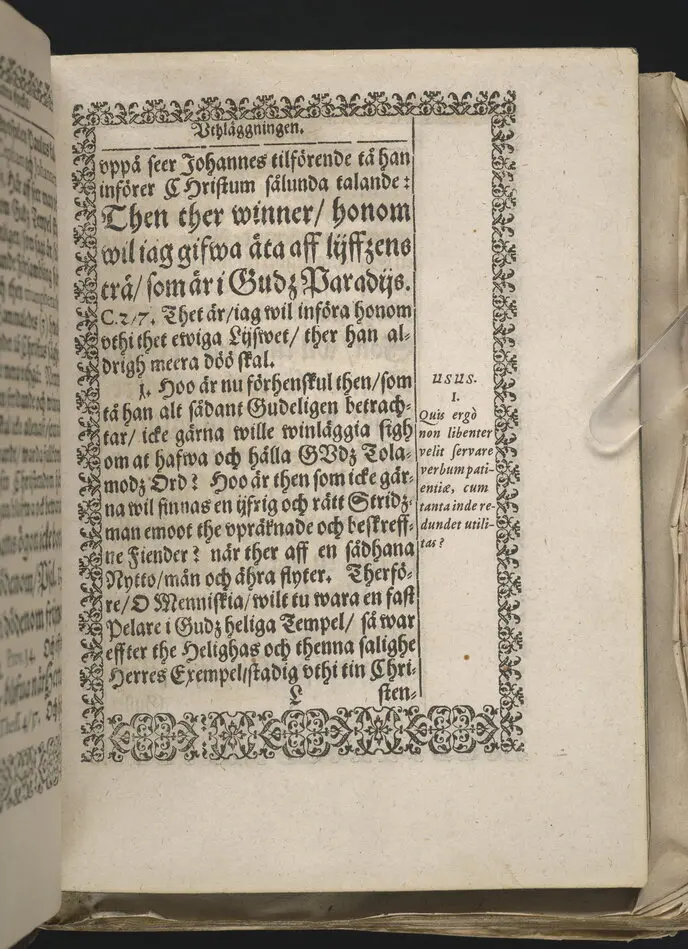 Vthläggningen.
vppå seer Johannes tilförende tå han
införer CHristum sålunda talande:
Then ther winner/ honom
wil iag gifwa äta aff lijffzens
trä/ som är i Gudz Paradijs.
C. 2/7. Thet är/iag wil införa honom
vthi thet ewiga Lijffwet/ ther han al-
drigh meera döö skal.
1. Hoo är nu förhenskul then/som
tå han alt sådant Gudeligen betrach-
tar/ icke gärna wille winläggia sigh
om at hafwa och hålla GVdz Tola-
modz Ord? Hoo är then som icke gär-
na wil finnas en ijfrig och rätt Stridz-
man emoot the vpräknade och beskreff-
ne Fiender? när ther aff en sådhana
Nytto/män och ähra flyter. Therfö-
re/O Menniskia/wilt tu wara en fast
Pelare i Gudz heliga Tempel/ så war
effter the Helighas och thenna salighe
Herres Exempel/stadig vthi tin Chri-
L sten-
usus.
I.
Quis ergò
non libenter
velit servare
verbum pati-
entiæ, cum
tanta inde re-
dundet utili-
tas?